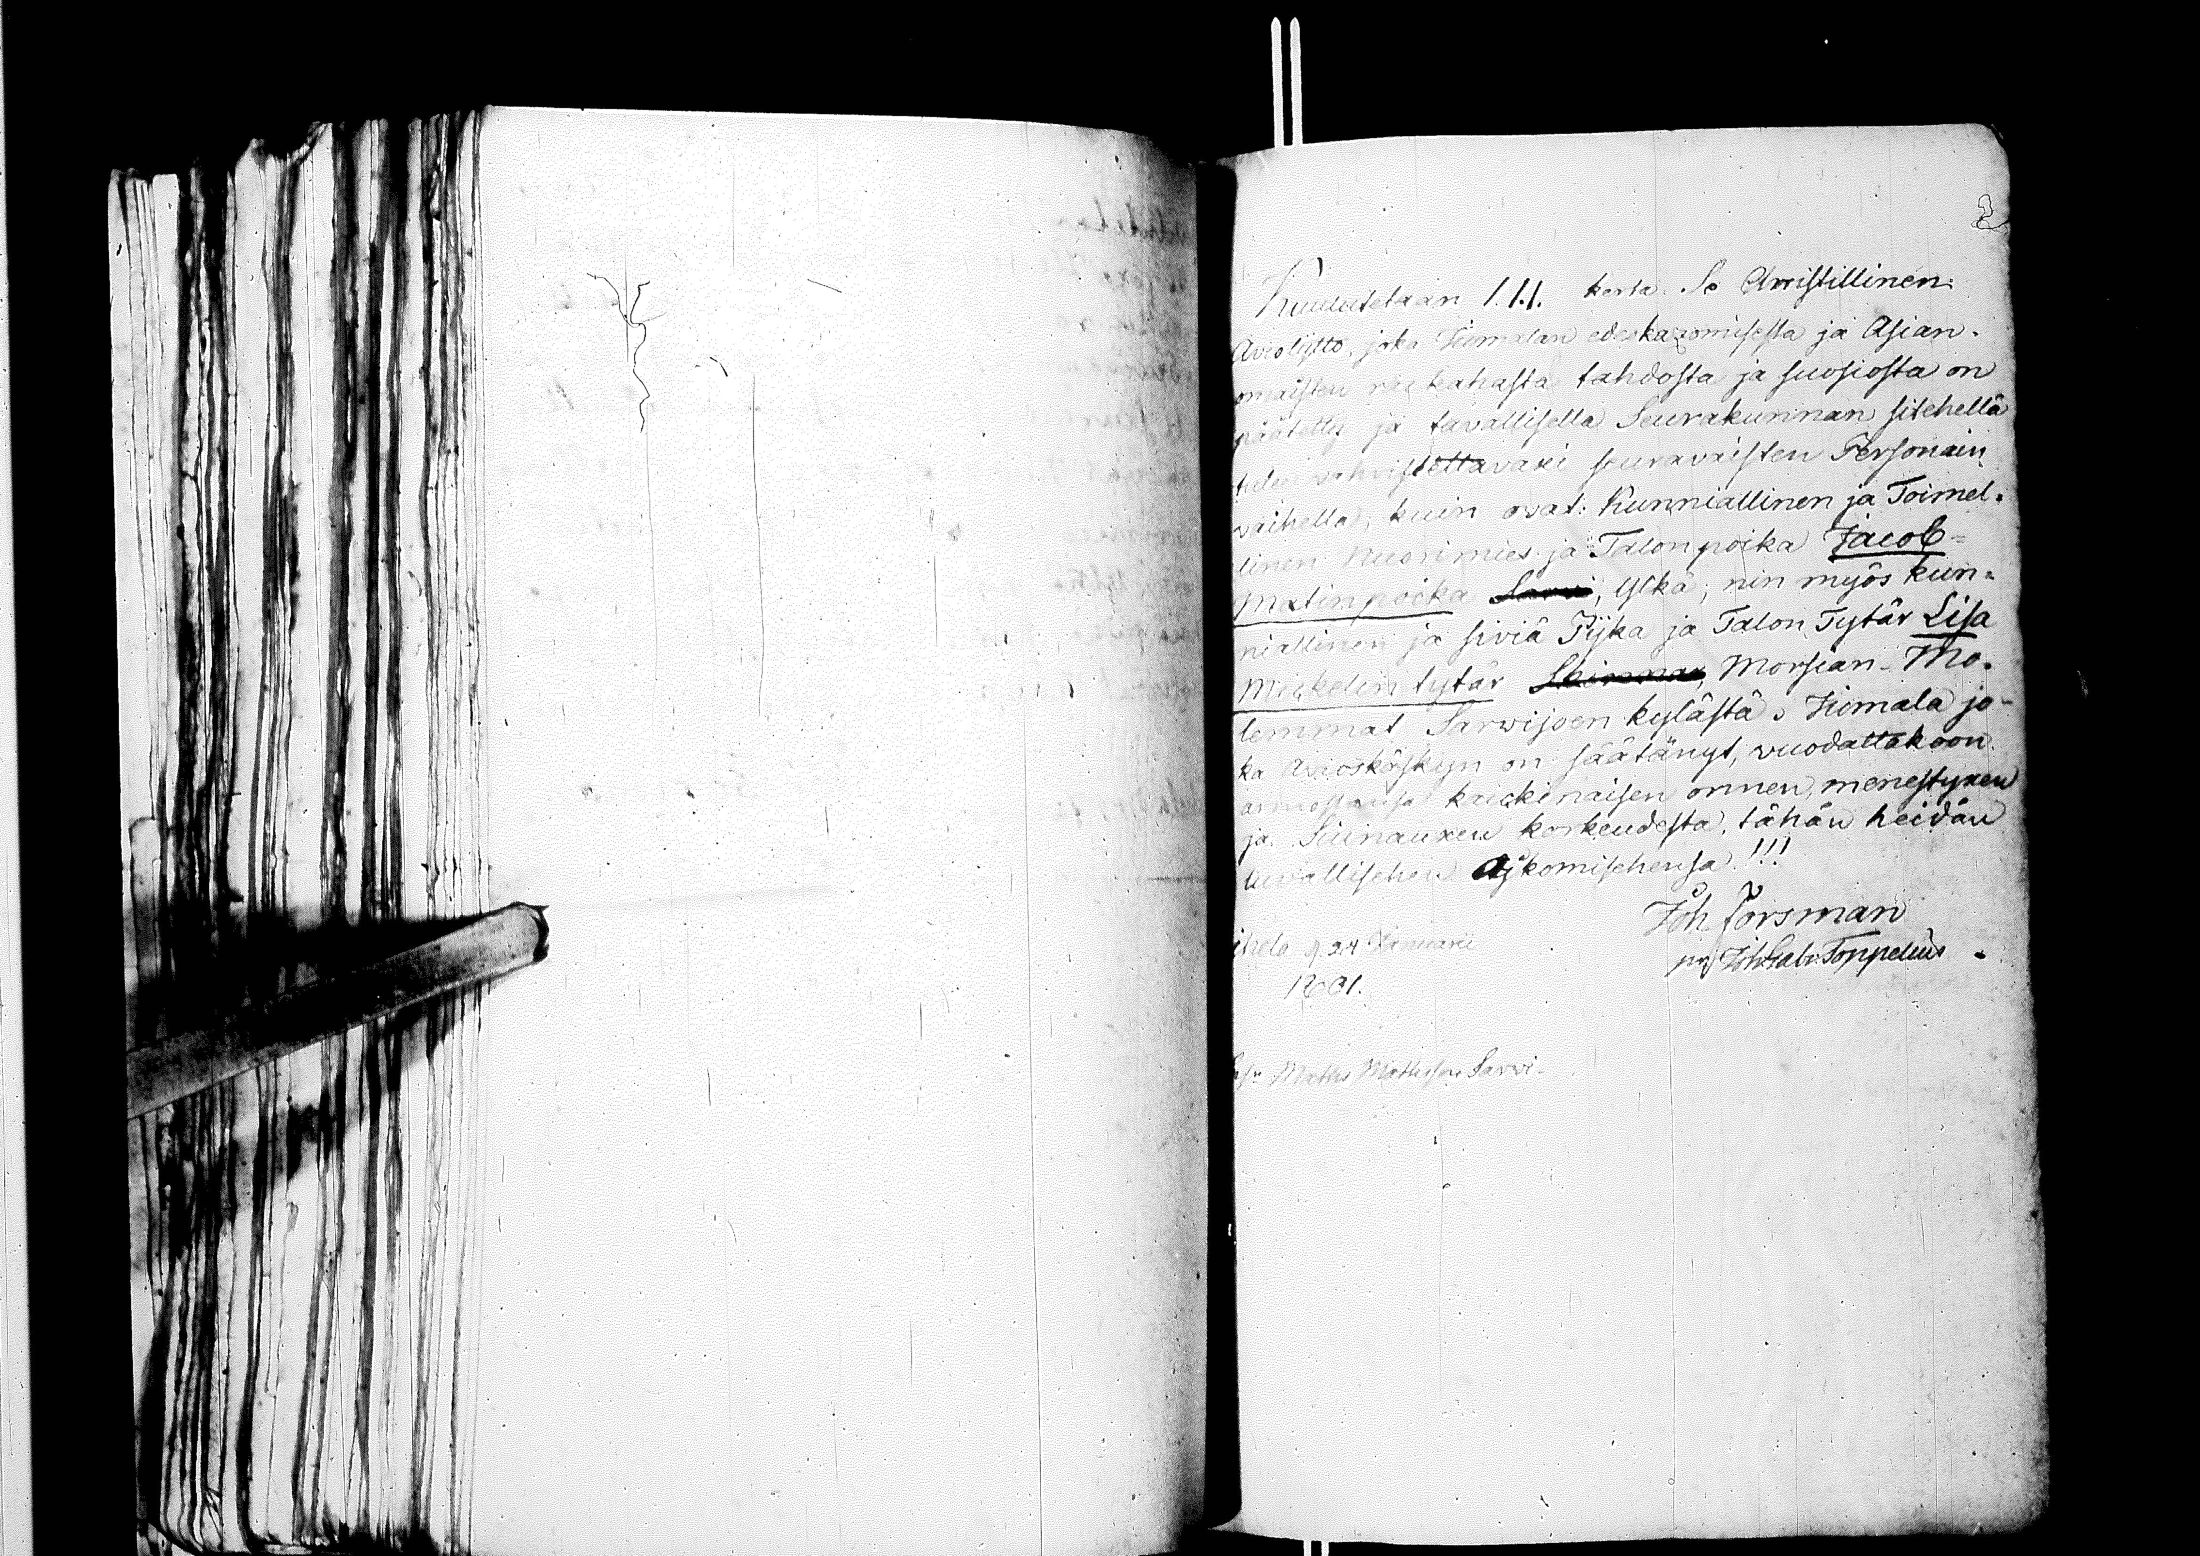 2
Kuulutetaan 1.1.1. kerta Se Christillinen
Avioliitto, joka Jumalan edeskazomisesta ja Asian-
omaisten rackahasta tahdosta ja suosiosta on
päätetty ja tavallisella Seurakunnan sitehellä
tulee vahvistettavaxi seuravaisten Personain
waihella, kuin ovat: Kunniallinen ja Toimel-
linen Nuorimies ja Talonpoika Jacob
Matinpoika Sarvi, Ylkä; nin myös kun-
niallinen ja siviä Pijka ja Talon Tytär Lisa
Mickelin tytär, Morsian- Mo-
lemmat Sarwijoen kylästä. Jumala jo-
ka Avioskäskyn on säätänyt, wuodattakoon
armostansa kaickinaisen onnen, menestyxen
ja Siunauxen korkeudesta, tähän heidän
Aijkomisehensa!!!
Joh. Forsman
Joh. Gabr. Toppelius
d. 24 Januarii
1801.
Maths Mathsson Sarvi